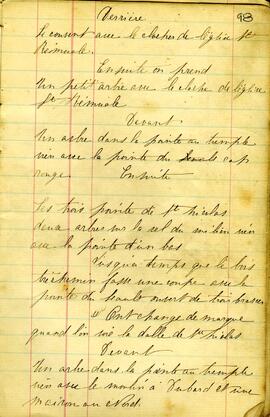 98
Derrière
Le couvent avec le clocher de l'église St
Rémuale.
Ensuite on prend
Un petit arbre avec le cloche de l'église
St Rémuale
Devant
Un arbre dans la pointe au temple
vien avec la pointe du cap
rouge. Ensuite
Les trois pointe de St Nicolas
deux arbres sur la sel du milieu vien
avec la pointe d'un bas
Jusqu'a temps que le bois
Bechemin fasse une coupe avec la
pointe du saute ouvert de trois brasses
Ont change de marque
quand l'on voie la dalle de St Nicolas
Devant
Un arbre dans la pointe au temple
vien avec le moulin à Dubord et une
maison au Nord.